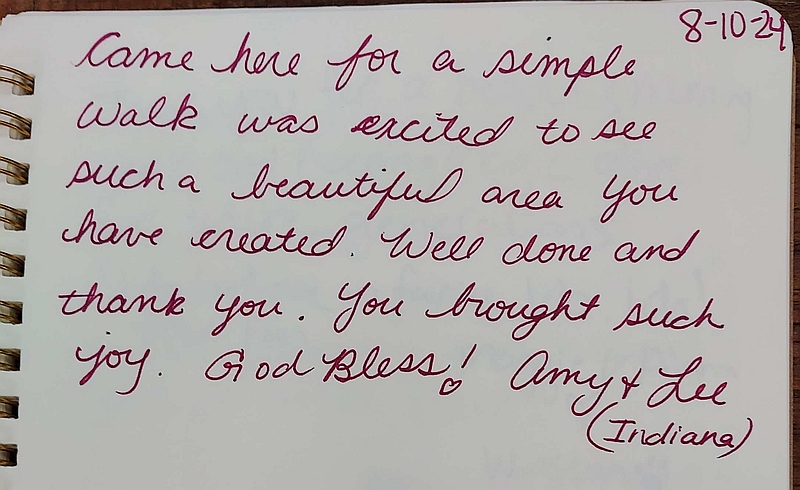 8-10-24
Came here for a simple
walk was excited to see
such a beautiful area you
have created. Well done and
thank you. You brought such
joy. God Bless! Amy & Lee
(Indiana)